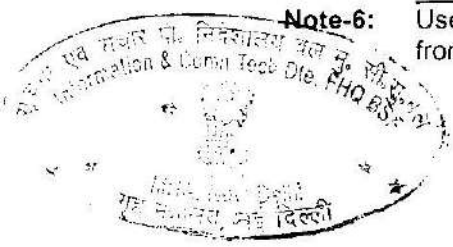 Note-6: Use
from
एवं संचार प्रौ. निदेशालय बल मु. सी.सु.बल
Information & Comn Tech Dte. FHQ BSF
गृह मंत्रालय, नई दिल्ली